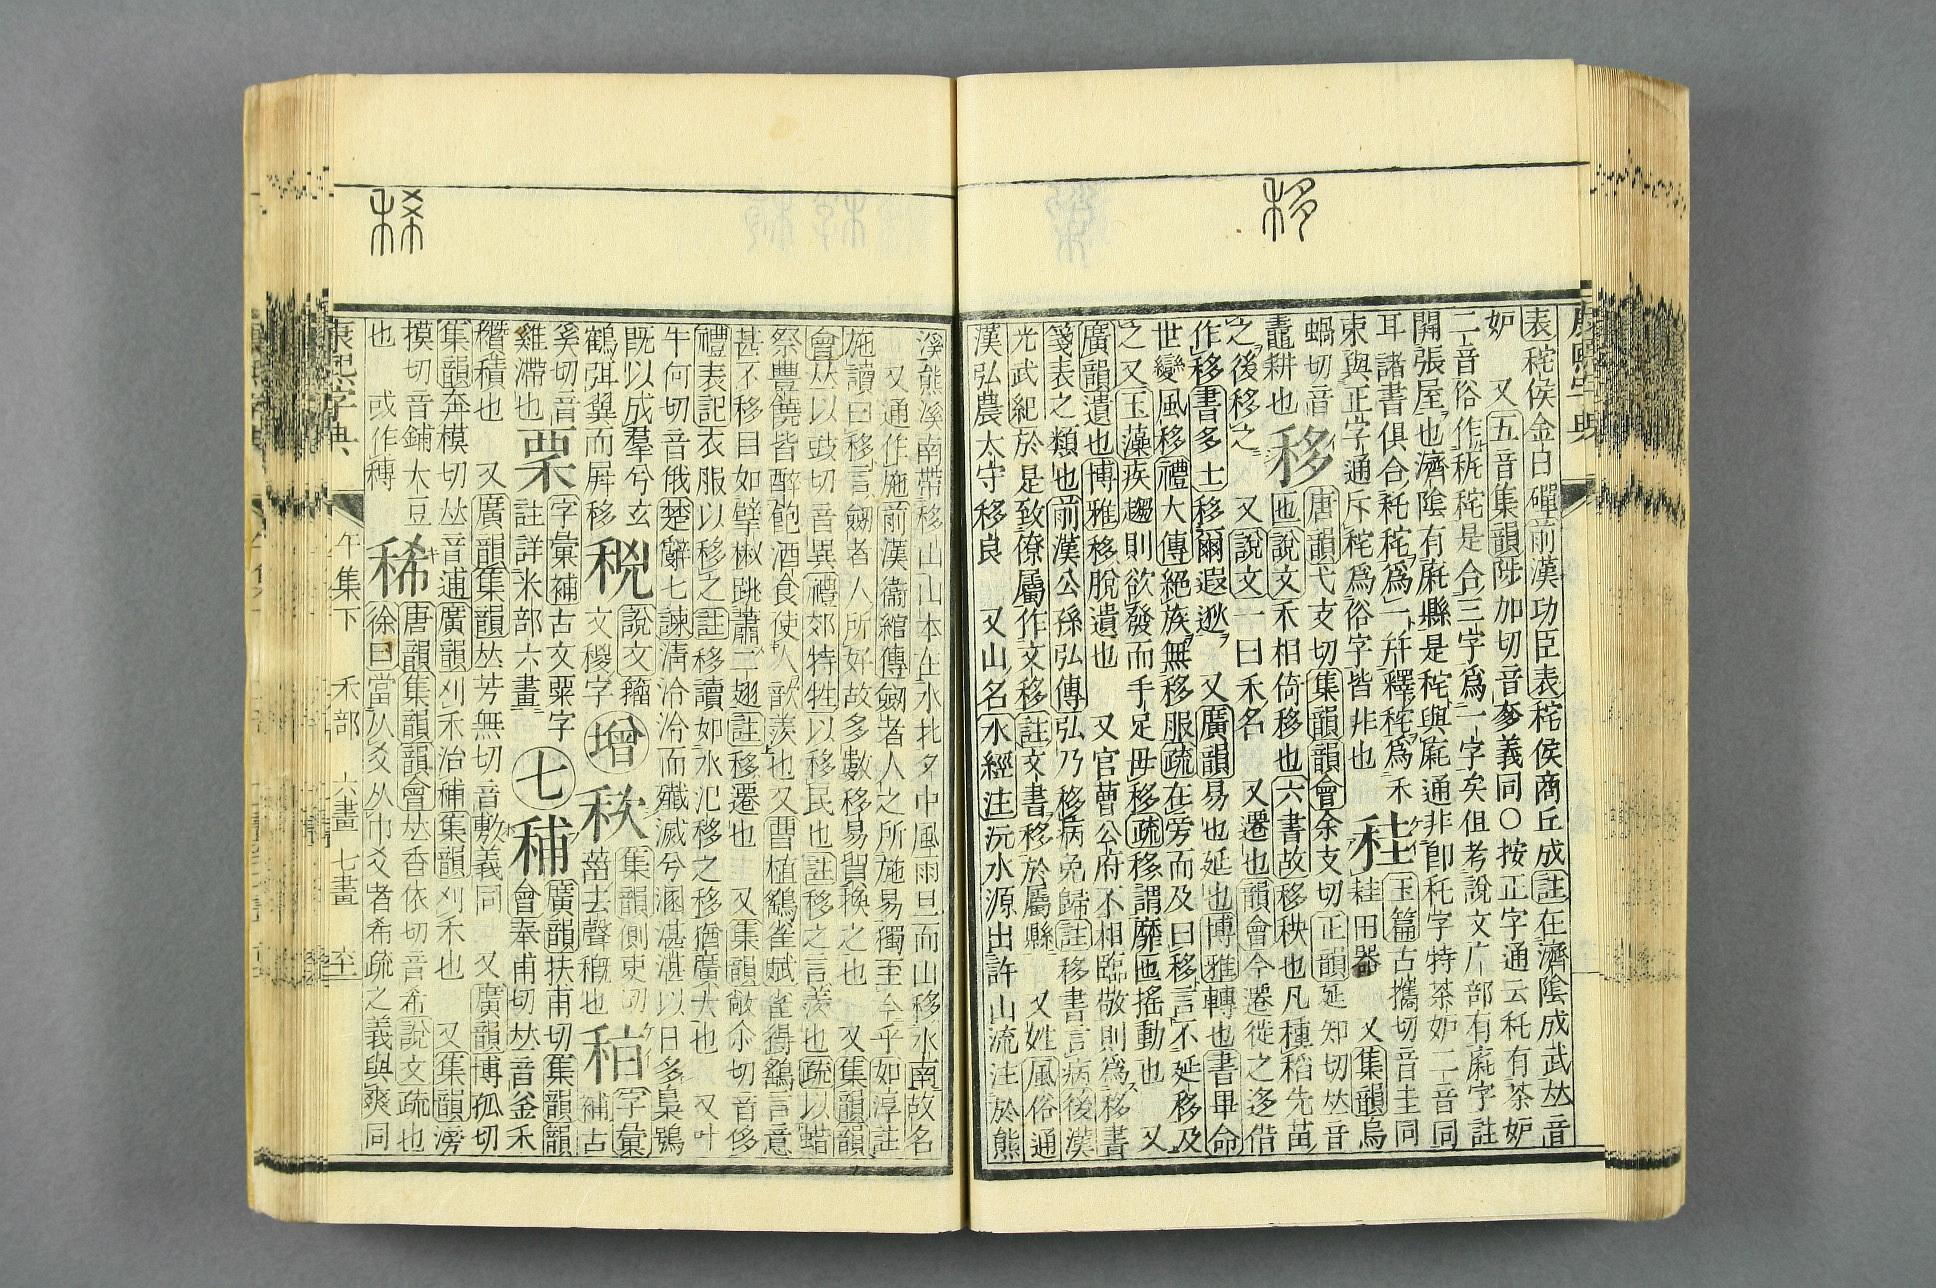 移
表秺侯金日磾前漢功臣表秺侯商丘成註在濟陰成武𠀤音
妒　又五音集韻陟加切音奓義同○按正字通云秅有茶妒
二音俗作秺秺是合三字爲一字矣但考說文广部有㡯字註
開張屋也濟陰有㡯縣是秺與㡯通非卽秅字特茶妒二音同
耳諸書俱合秅秺爲一斤釋秺爲禾
束與正字通斥秺爲俗字皆非也
䅅
玉篇古攜切音圭同
䅅田器　又集韻烏
蝸切音
鼃耕也
移
唐韻弋支切集韻韻會余支切正韻延知切𠀤音
匜說文禾相倚移也六書故移秧也凡種稻先苗
之後移之　又說文一曰禾名　又遷也韻會今遷徙之迻借
作移書多士移爾遐逖　又廣韻易也延也博雅轉也書畢命
世變風移禮大傳絕族無移服疏在旁而及曰移言不延移及
之又玉藻疾趨則欲發而手足毋移疏移謂靡匜搖動也　又
廣韻遺也博雅移脫遺也　又官曹公府不相臨敬則爲移書
箋表之類也前漢公孫弘傳弘乃移病免歸註移書言病後漢
光武紀於是致僚屬作文移註文書移於屬縣　又姓風俗通
漢弘農太守移良　又山名水經注沅水源出許山流注於熊
稀
溪熊溪南帶移山山本在水北夕中風雨旦而山移水南故名
又通作施前漢衞綰傳劒者人之所施易獨至今乎如淳註
施讀曰移言劒者人所好故多數移易貿換之也　又集韻韻
會𠀤以豉切音異禮郊特牲以移民也註移之言羨也疏以蜡
祭豐饒皆醉飽酒食使人歆羨也又曹植鷂雀賦雀得鷂言意
甚不移目如擘椒跳蕭二翅註移遷也　又集韻敞尒切音侈
禮表記衣服以移之註移讀如水氾移之移猶廣大也　又叶
牛何切音俄楚辭七諫淸泠泠而殱滅兮溷湛湛以日多梟鴞
旣以成羣兮玄
鶴弭翼而屛移
䅐
說文籀
文稷字
增
䄲
集韻側吏切
菑去聲穊也
䄸
字彙
補古
奚切音
雞滯也
䅇
字彙補古文粟字
註詳米部六畫
七
䋠
廣韻扶甫切集韻韻
會奉甫切𠀤音釜禾
稸積也　又廣韻集韻𠀤芳無切音敷義同　又廣韻博孤切
集韻奔模切𠀤音逋廣韻刈禾治補集韻刈禾也　又集韻滂
摸切音鋪大豆
也　或作䅭
稀
唐韻集韻韻會𠀤香依切音希說文疏也
徐曰當从爻从巾爻者希疏之義與爽同
康熙字典
午集下　禾部　六畫　七畫